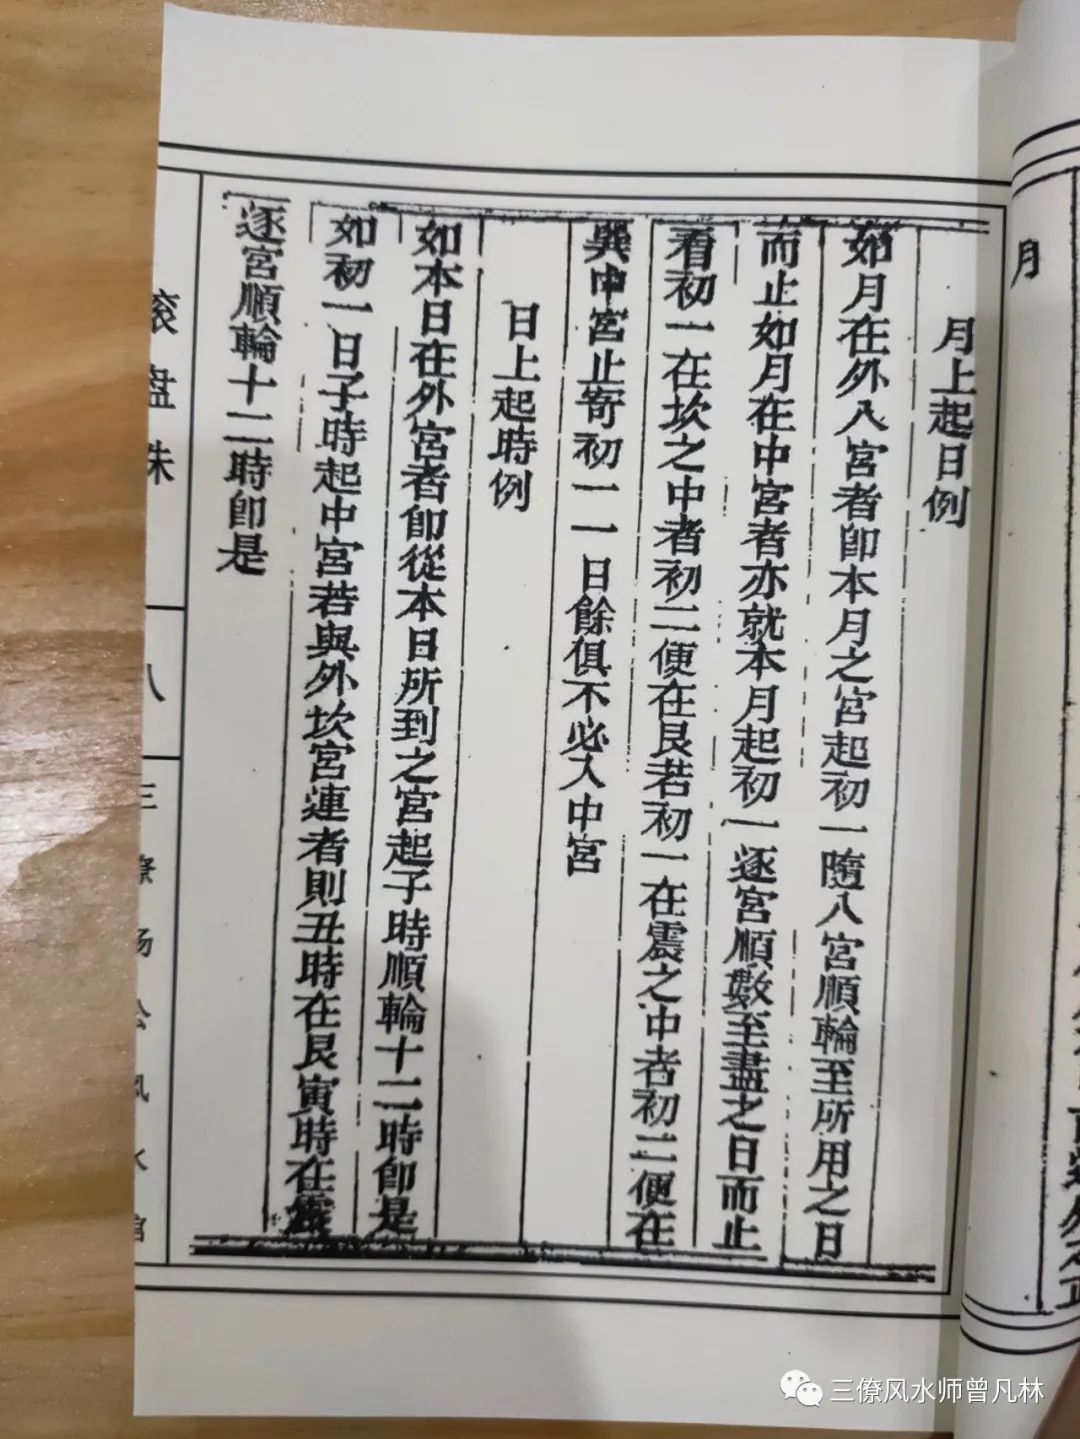 月上起日例
如月在外八宮者即本月之宮起初一隨八宮順輪至所用之日
而止如月在中宮者亦就本月起初一逐宮順數至盡之日而止
看初一在坎之中者初二便在艮若初一在震之中者初二便在
巽中宮止寄初一一日餘俱不必入中宮
日上起時例
如本日在外宮者即從本日所到之宮起子時順輪十二時即是
如初一日子時起中宮若與外坎宮連者則丑時在艮寅時在震
逐宮順輪十二時即是
滚盘珠
八
三僚杨公风水馆
月
三僚风水师曾凡林